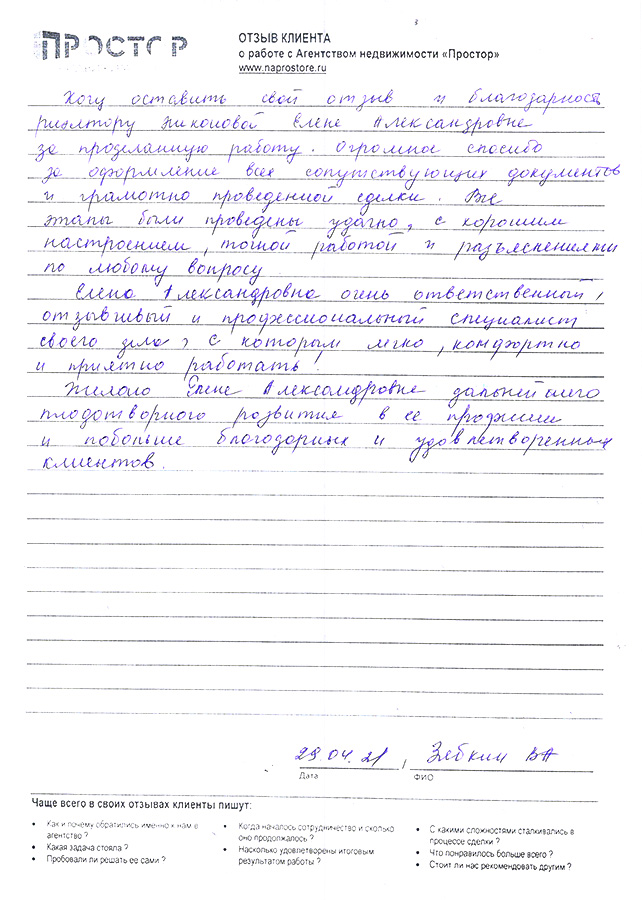 ПРОСТОР
ОТЗЫВ КЛИЕНТА
о работе с Агентством недвижимости «Простор»
www.naprostore.ru
Хочу оставить свой отзыв и благодарность
риэлтору Никоновой Елене Александровне
за проделанную работу. Огромное спасибо
за оформление всех сопутствующих документов
и грамотно проведенной сделки. Все
этапы были проведены удачно, с хорошим
настроением, точной работой и разъяснениями
по любому вопросу.
Елена Александровна очень ответственный,
отзывчивый и профессиональный специалист
своего дела, с которым легко, комфортно
и приятно работать!
Желаю Елене Александровне дальнейшего
плодотворного развития в ее
и побольше благодарных и удовлетворенных
клиентов.
29.04.21, Зябкин ВА
Дата
ФИО
Чаще всего в своих отзывах клиенты пишут:
• Как и почему обратились именно к нам в
агентство ?
• Какая задача стояла ?
• Пробовали ли решать ее сами ?
• Когда началось сотрудничество и сколько
оно продолжалось ?
• Насколько удовлетворены итоговым
результатом работы ?
• С какими сложностями сталкивались в
процессе сделки ?
• Что понравилось больше всего ?
• Стоит ли нас рекомендовать другим ?